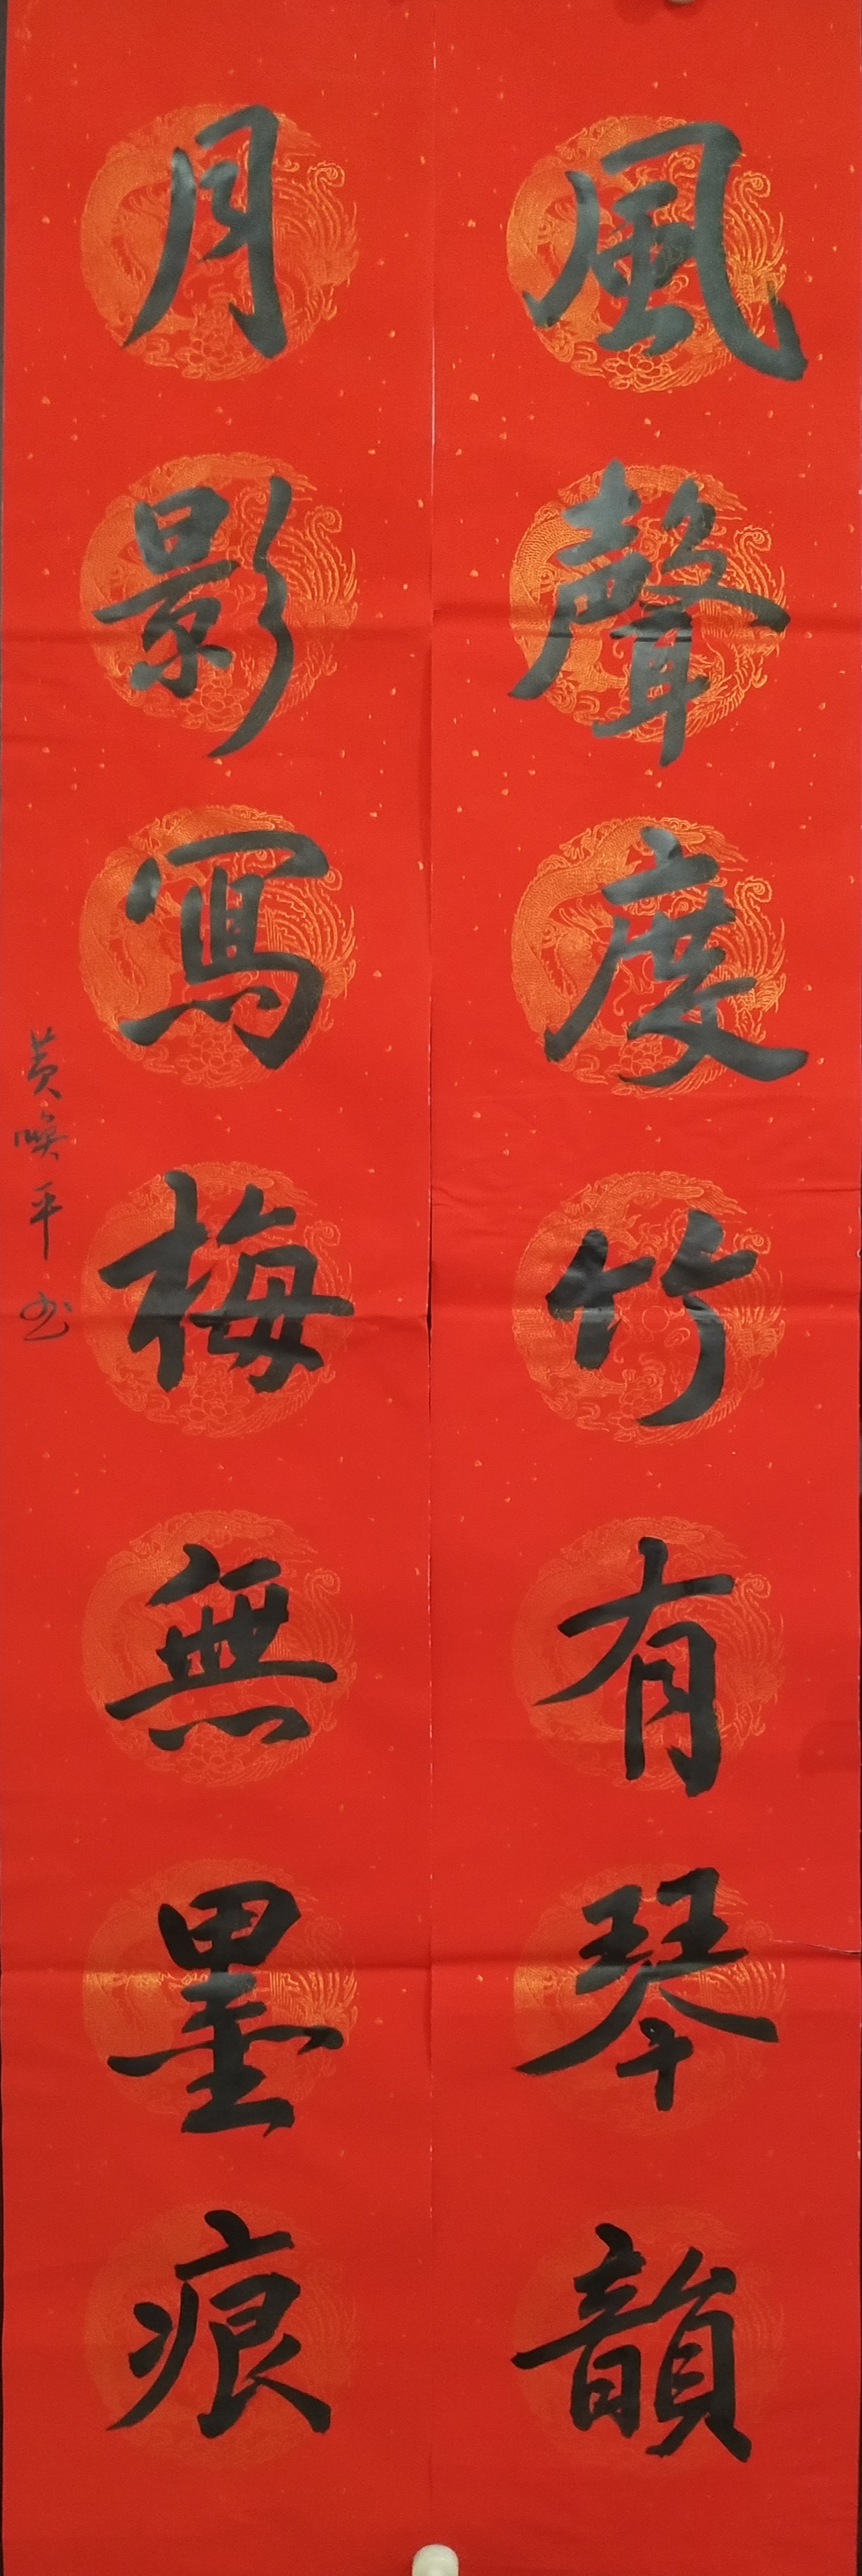 風聲度竹有琴韻
月影寫梅無墨痕
黄喚平书